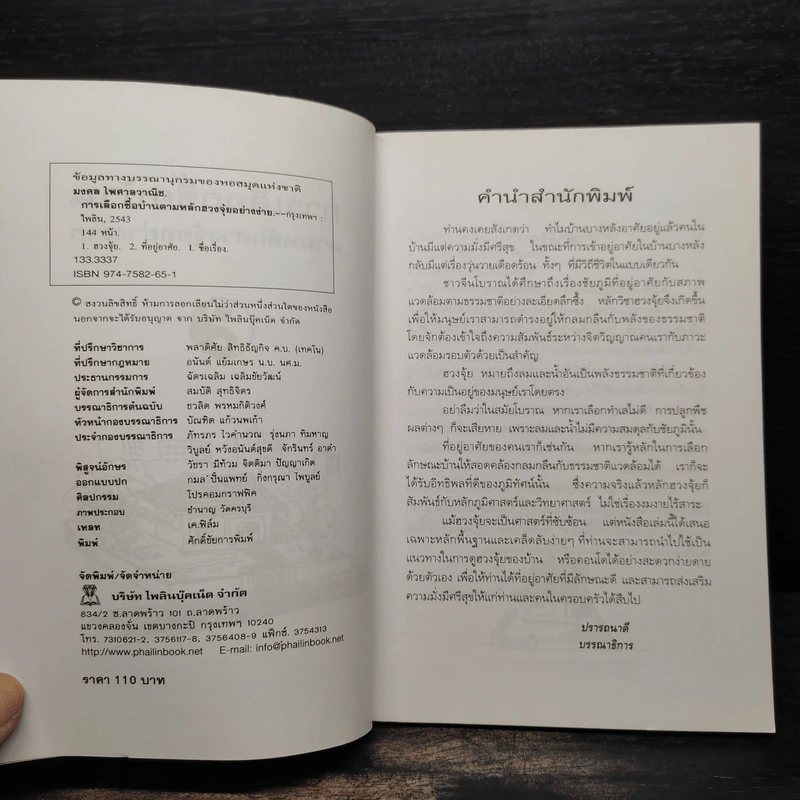 ข้อมูลทางบรรณานุกรมของหอสมุดแห่งชาติ
มงคล ไพศาลวาณิช.
การเลือกซื้อบ้านตามหลักฮวงจุ้ยอย่างง่าย.--กรุงเทพฯ :
ไพลิน, 2543
144 หน้า.
1. ฮวงจุ้ย. 2. ที่อยู่อาศัย. I. ชื่อเรื่อง.
133.3337
ISBN 974-7582-65-1
© สงวนลิขสิทธิ์ ห้ามการลอกเลียนไม่ว่าส่วนหนึ่งส่วนใดของหนังสือ
นอกจากจะได้รับอนุญาต จาก บริษัท ไพลินบุ๊คเน็ต จำกัด
ที่ปรึกษาวิชาการ พลาดิศัย สิทธิธัญกิจ ค.บ. (เทคโน)
ที่ปรึกษากฎหมาย อนันต์ แย้มเกษร น.บ. นศ.ม.
ประธานกรรมการ ฉัตรเฉลิม เฉลิมชัยวัฒน์
ผู้จัดการสำนักพิมพ์ สมบัติ สุทธิจิตร
บรรณาธิการต้นฉบับ ชวลิต พรหมกิติวงศ์
หัวหน้ากองบรรณาธิการ บัณฑิต แก้วนพเก้า
ประจำกองบรรณาธิการ ภัทรภร ไวคำนวณ รุ่งนภา ทิมหาญ
วิบูลย์ หวังอนันต์สุขดี จักรินทร์ อาดำ
พิสูจน์อักษร วัชรา มีทิวม จิตติมา ปัญญาเกิด
ออกแบบปก กมล ปั้นแพทย์ กิ่งกรุณา ไพบูลย์
ศิลปกรรม โปรคอมกราฟฟิค
ภาพประกอบ ชำนาญ วัดครบุรี
เพลท เค.ฟิล์ม
พิมพ์ ศักดิ์ชัยการพิมพ์
จัดพิมพ์/จัดจำหน่าย
บริษัท ไพลินบุ๊คเน็ต จำกัด
834/2 ซ.ลาดพร้าว 101 ถ.ลาดพร้าว
แขวงคลองจั่น เขตบางกะปิ กรุงเทพฯ 10240
โทร. 7310621-2, 3756117-8, 3756408-9 แฟ็กซ์. 3754313
http://www.phailinbook.net E-mail: info@phailinbook.net
ราคา 110 บาท
คำนำสำนักพิมพ์
ท่านคงเคยสังเกตว่า ทำไมบ้านบางหลังอาศัยอยู่แล้วคนใน
บ้านมีแต่ความมั่งมีศรีสุข ในขณะที่การเข้าอยู่อาศัยในบ้านบางหลัง
กลับมีแต่เรื่องวุ่นวายเดือดร้อน ทั้งๆ ที่มีวิถีชีวิตในแบบเดียวกัน
ชาวจีนโบราณได้ศึกษาถึงเรื่องชัยภูมิที่อยู่อาศัยกับสภาพ
แวดล้อมตามธรรมชาติอย่างละเอียดลึกซึ้ง หลักวิชาฮวงจุ้ยจึงเกิดขึ้น
เพื่อให้มนุษย์เราสามารถดำรงอยู่ให้กลมกลืนกับพลังของธรรมชาติ
โดยจักต้องเข้าใจถึงความสัมพันธ์ระหว่างจิตวิญญาณคนเรากับภาวะ
แวดล้อมรอบตัวด้วยเป็นสำคัญ
ฮวงจุ้ย หมายถึงลมและน้ำอันเป็นพลังธรรมชาติที่เกี่ยวข้อง
กับความเป็นอยู่ของมนุษย์เราโดยตรง
อย่าลืมว่าในสมัยโบราณ หากเราเลือกทำเลไม่ดี การปลูกพืช
ผลต่างๆ ก็จะเสียหาย เพราะลมและน้ำไม่มีความสมดุลกับชัยภูมินั้น
ที่อยู่อาศัยของคนเราก็เช่นกัน หากเรารู้หลักในการเลือก
ลักษณะบ้านให้สอดคล้องกลมกลืนกับธรรมชาติแวดล้อมได้ เราก็จะ
ได้รับอิทธิพลที่ดีของภูมิทัศน์นั้น ซึ่งความจริงแล้วหลักฮวงจุ้ยก็
สัมพันธ์กับหลักภูมิศาสตร์และวิทยาศาสตร์ ไม่ใช่เรื่องงมงายไร้สาระ
แม้ฮวงจุ้ยจะเป็นศาสตร์ที่ซับซ้อน แต่หนังสือเล่มนี้ได้เสนอ
เฉพาะหลักพื้นฐานและเคล็ดลับง่ายๆ ที่ท่านจะสามารถนำไปใช้เป็น
แนวทางในการดูฮวงจุ้ยของบ้าน หรือคอนโดได้อย่างสะดวกง่ายดาย
ด้วยตัวเอง เพื่อให้ท่านได้ที่อยู่อาศัยที่มีลักษณะดี และสามารถส่งเสริม
ความมั่งมีศรีสุขให้แก่ท่านและคนในครอบครัวได้สืบไป
ปรารถนาดี
บรรณาธิการ